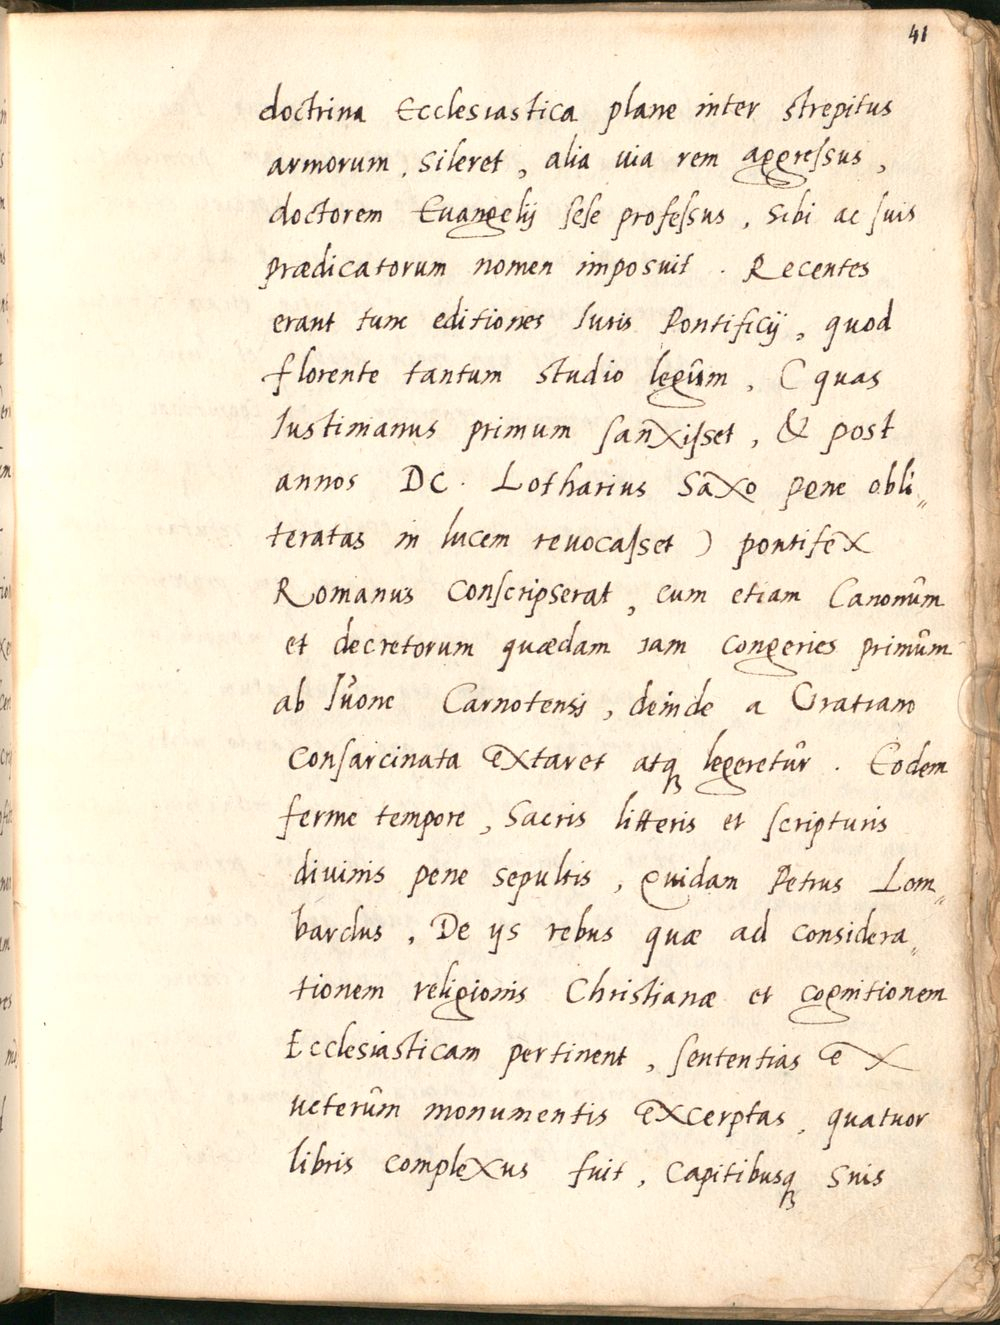 41
doctrina Ecclesiastica plane inter strepitus
armorum, sileret, alia uia rem aggreſsus,
doctorem Euangelij ſeſe profeſsus, sibi ac ſuis
prædicatorum nomen imposuit. Recentes
erant tunc editiones Iuris Pontificij, quod
florente tantum studio legûm, (quas
Iustinianus primum ſanxiſset, & post
annos DC. Lotharius Saxo pene obli„
teratas in lucem reuocaſset) pontifex
Romanus conſcripserat, cum etiam Canonûm
et decretorum quædam iam congeries primûm
ab Iuone Carnotensi, deinde a Gratiano
conſarcinata extaret atqꝫ legeretûr. Eodem
ferme tempore, Sacris litteris et ſcripturis
diuinis pene sepultis, quidam Petrus Lom„
bardus, De ijs rebus quæ ad considera„
tionem religionis Christianæ et cognitionem
Ecclesiasticam pertinent, ſententias ex
ueterûm monumentis excerptas, quatuor
libris complexus fuit, Capitibusqꝫ suis